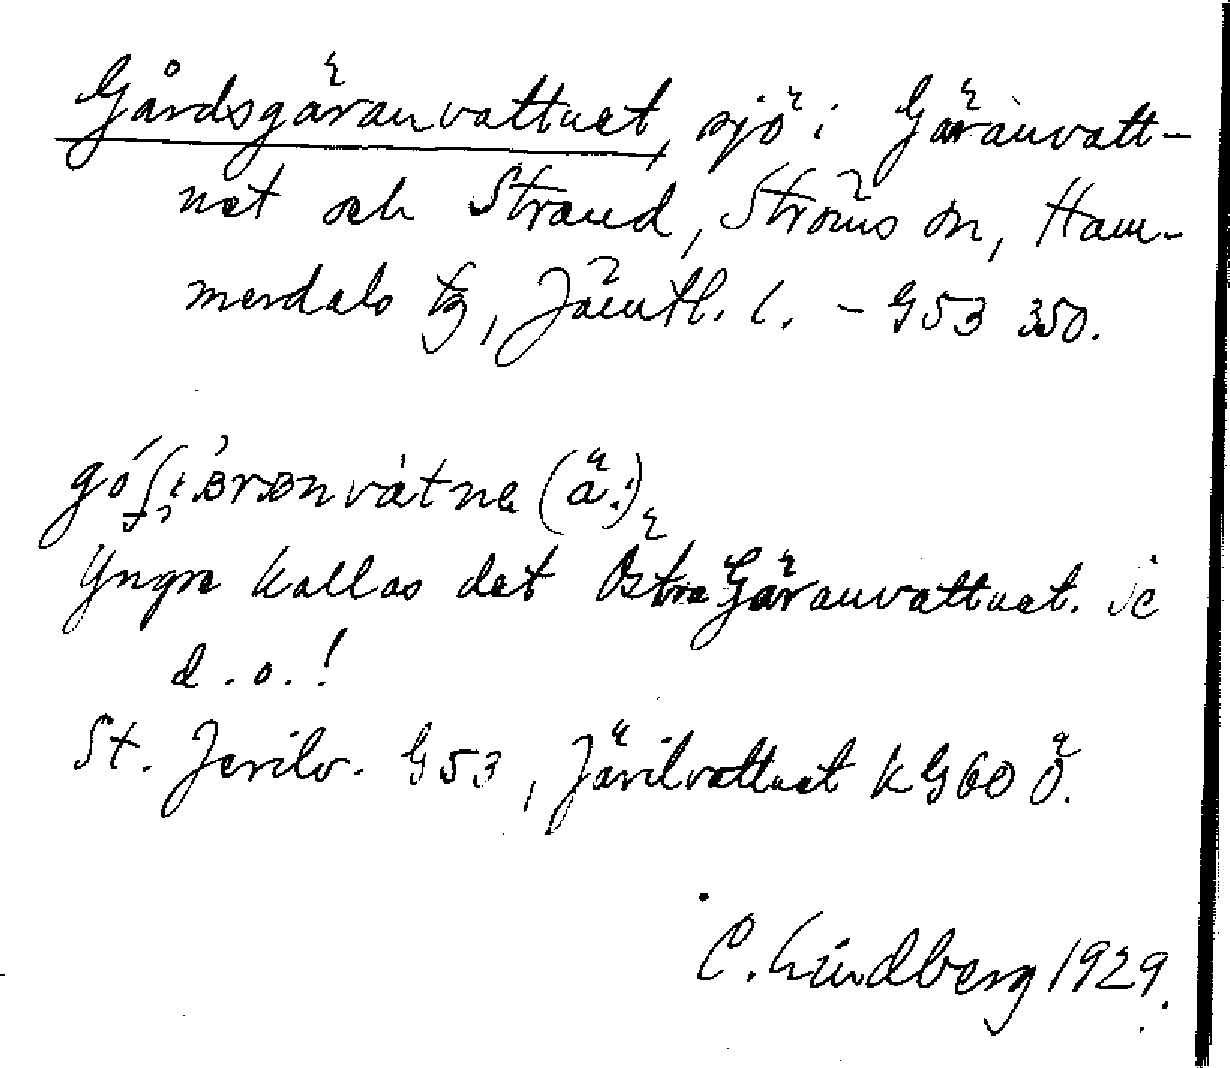 Gårdsgäranvattnet, sjö i Gäranvatt-
net och Strand, Ströms sn, Ham-
merdals tg, Jämtl. l. – G53 350.
(ä!)
Yngre kallas det Östra Gäranvattnet.
d.o.!
St. Jerilv. G53, Järilvattnet KG60 Ö.
C. Lindberg 1929.